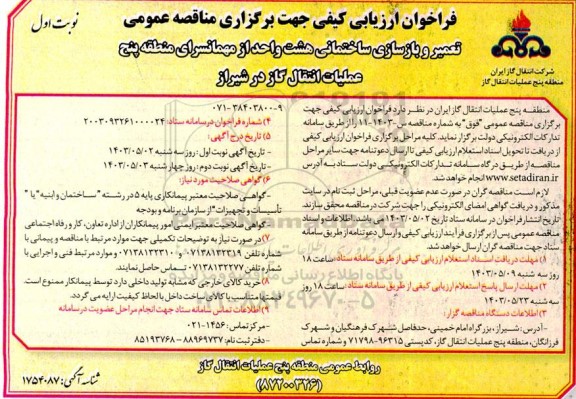 نوبت اول
فراخوان ارزیابی کیفی جهت برگزاری مناقصه عمومی
تعمیر و بازسازی ساختمانی هشت واحد از مهمانسرای منطقه پنج
عملیات انتقال گاز در شیراز
شرکت انتقال گاز ایران
منطقه پنج عملیات انتقال گاز
منطقه پنج عملیات انتقال گاز ایران در نظر دارد فراخوان ارزیابی کیفی جهت
برگزاری مناقصه عمومی "فوق" به شماره مناقصه س-۱۴۰۳-۱۱ را از طریق سامانه
تدارکات الکترونیکی دولت برگزار نماید. کلیه مراحل برگزاری فراخوان ارزیابی کیفی
از دریافت تا تحویل اسناد استعلام ارزیابی کیفی تا ارسال دعوتنامه جهت سایر مراحل
مناقصه از طریق درگاه سامانه تدارکات الکترونیکی دولت ستاد به آدرس
www.setadiran.ir انجام خواهد شد.
لازم است مناقصه گران در صورت عدم عضویت قبلی، مراحل ثبت نام در سایت
مذکور و دریافت گواهی امضای الکترونیکی را جهت شرکت در مناقصه محقق سازند.
تاریخ انتشار فراخوان در سامانه ستاد تاریخ ۱۴۰۳/۰۵/۰۲ می باشد. اطلاعات و اسناد
مناقصه عمومی پس از برگزاری فرآیند ارزیابی کیفی و ارسال دعوتنامه از طریق سامانه
ستاد جهت مناقصه گران ارسال خواهد شد.
۱) مهلت دریافت اسناد استعلام ارزیابی کیفی از طریق سامانه ستاد: ساعت ۱۸
روز سه شنبه ۱۴۰۳/۰۵/۰۹
۲) مهلت ارسال پاسخ استعلام ارزیابی کیفی از طریق سامانه ستاد: ساعت ۱۸ روز
سه شنبه ۱۴۰۳/۰۵/۲۳
۳) اطلاعات دستگاه مناقصه گزار:
- آدرس: شیراز، بزرگراه امام خمینی، حدفاصل شهرک فرهنگیان و شهرک
فرزانگان، منطقه پنج عملیات انتقال گاز، کدپستی ۹۶۳۱۵-۷۱۷۹۸ و شماره تماس
۰۷۱-۳۸۴۰۳۸۰۰-۹
۴) شماره فراخوان در سامانه ستاد: ۲۰۰۳۰۹۳۲۶۱۰۰۰۰۲۴
۵) تاریخ درج آگهی:
- تاریخ آگهی نوبت اول: روز سه شنبه ۱۴۰۳/۰۵/۰۲
- تاریخ آگهی نوبت دوم: روز چهار شنبه ۱۴۰۳/۰۵/۰۳
۶) گواهی صلاحیت مورد نیاز:
- گواهی صلاحیت معتبر پیمانکاری پایه ۵ در رشته "ساختمان و ابنیه" یا "
تأسیسات و تجهیزات" از سازمان برنامه و بودجه
- گواهی صلاحیت معتبر ایمنی امور پیمانکاران از اداره تعاون، کار و رفاه اجتماعی
۷) در صورت نیاز به توضیحات تکمیلی جهت موارد مرتبط با مناقصه و پیمانی با
شماره تلفن ۰۷۱۳۸۱۳۲۳۱۹ و موارد مرتبط فنی و اجرایی با
شماره تلفن ۰۷۱۳۸۱۳۲۳۱۰ تماس حاصل نمایند.
۸) خرید کالای خارجی که مشابه تولید داخلی دارد توسط پیمانکار ممنوع است.
قیمت متناسب با کالای ساخت داخل با لحاظ کیفیت ارایه می گردد.
۹) اطلاعات تماس سامانه ستاد جهت انجام مراحل عضویت در سامانه
- مرکز تماس: ۱۴۵۶-۰۲۱
- دفتر ثبت نام: ۸۸۹۶۹۷۳۷ - ۸۵۱۹۳۷۶۸
روابط عمومی منطقه پنج عملیات انتقال گاز
(۸۷۲۰۰۳۲۶)
شناسه آگهی: ۱۷۵۴۰۸۷